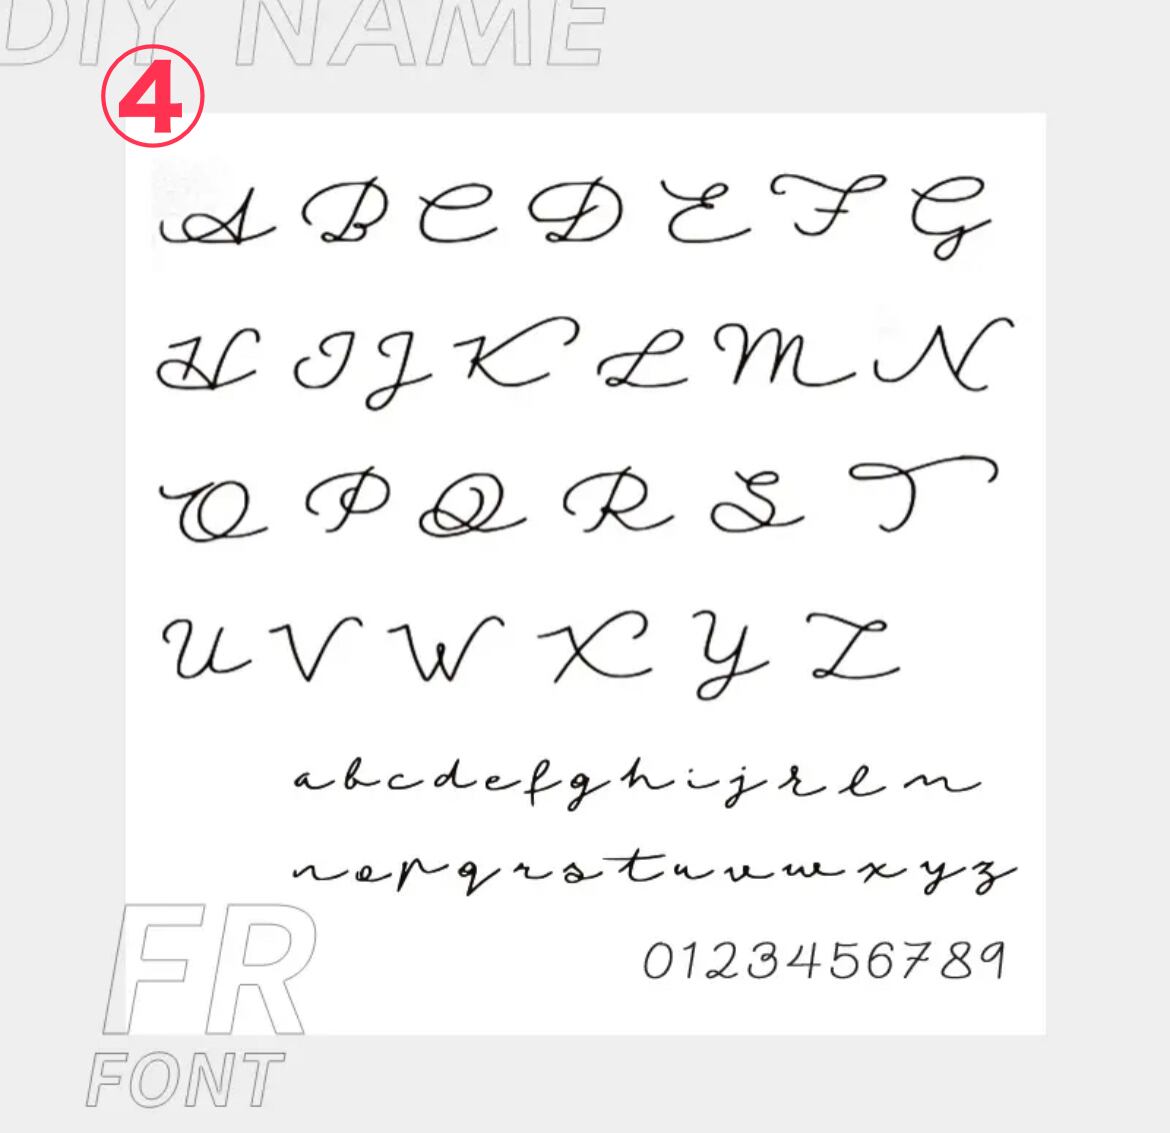 DIY NAME
④
A B C D E F G
H I J K L M N
O P Q R S T
U V W X Y Z
a b c d e f g h i j k l m
n o p q r s t u v w x y z
0123456789
FR
FONT